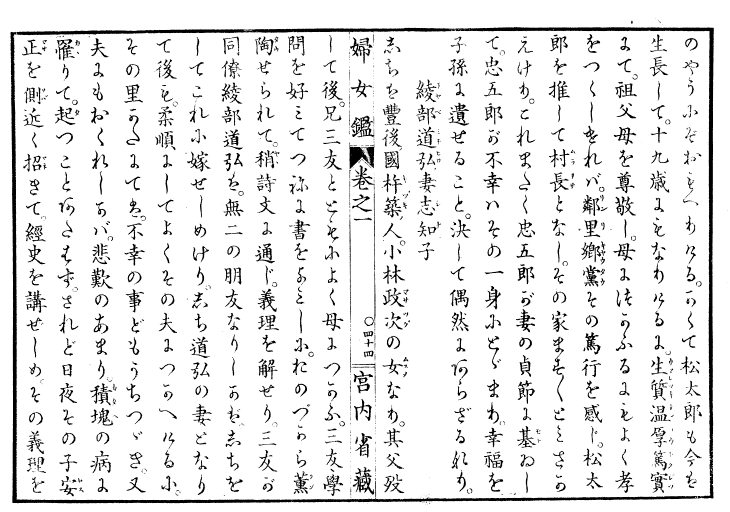 のやうにぞおもへりける。かくて松太郎も今は
生長して。十九歳にもなりけるに。生質温厚篤實
にて。祖父母を尊敬し。母につかふるにもよく孝
をつくしければ。鄰里郷黨その篤行を感じ。松太
郎を推して村長となし。その家ますますとみさか
えけり。これまたく忠五郎が妻の貞節に基ゐし
て。忠五郎が不幸ハその一身にとゞまり。幸福を
子孫に遺せること。決して偶然にあらざるなり。
綾部道弘妻志知子
しちは豐後國杵築人。小林政次の女なり。其父歿
婦女鑑 卷之一 〇四十四 宮内省藏
して後。兄三友とともによく母につかふ。三友學
問を好みてつねに書をよみしに。おのづから薫
陶せられて。稍詩文に通じ。義理を解せり。三友が
同僚綾部道弘は。無二の朋友なりしかば。しちを
してこれに嫁せしめけり。しち道弘の妻となり
て後も。柔順にしてよくその夫につかへけるに。
その里かたにては。不幸の事どもうちつゞき。又
夫にもおくれしかば。悲歎のあまり。積塊の病に
罹りて。起つことあたはず。されど日夜その子安
正を側近く招きて。經史を講せしめ。その義理を